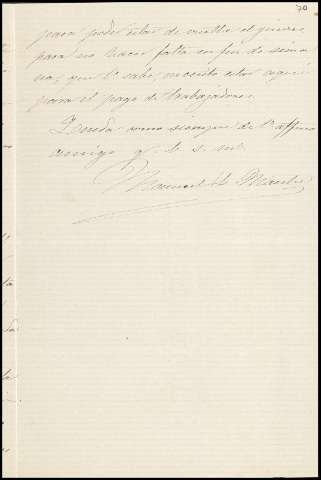 70
para poder estar de vuelta el jueves
para no hacer falta en fin de sema
na, que Vd. sabe, necesito estar aqui
para el pago de trabajadores.
Queda como siempre de Vd. affmo
amigo q. b. s. m.
Manuel